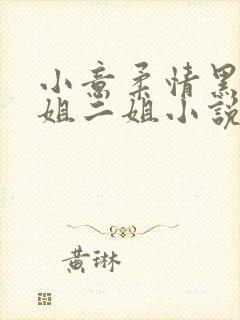 小意柔情黑
姐二姐小說
黄琳